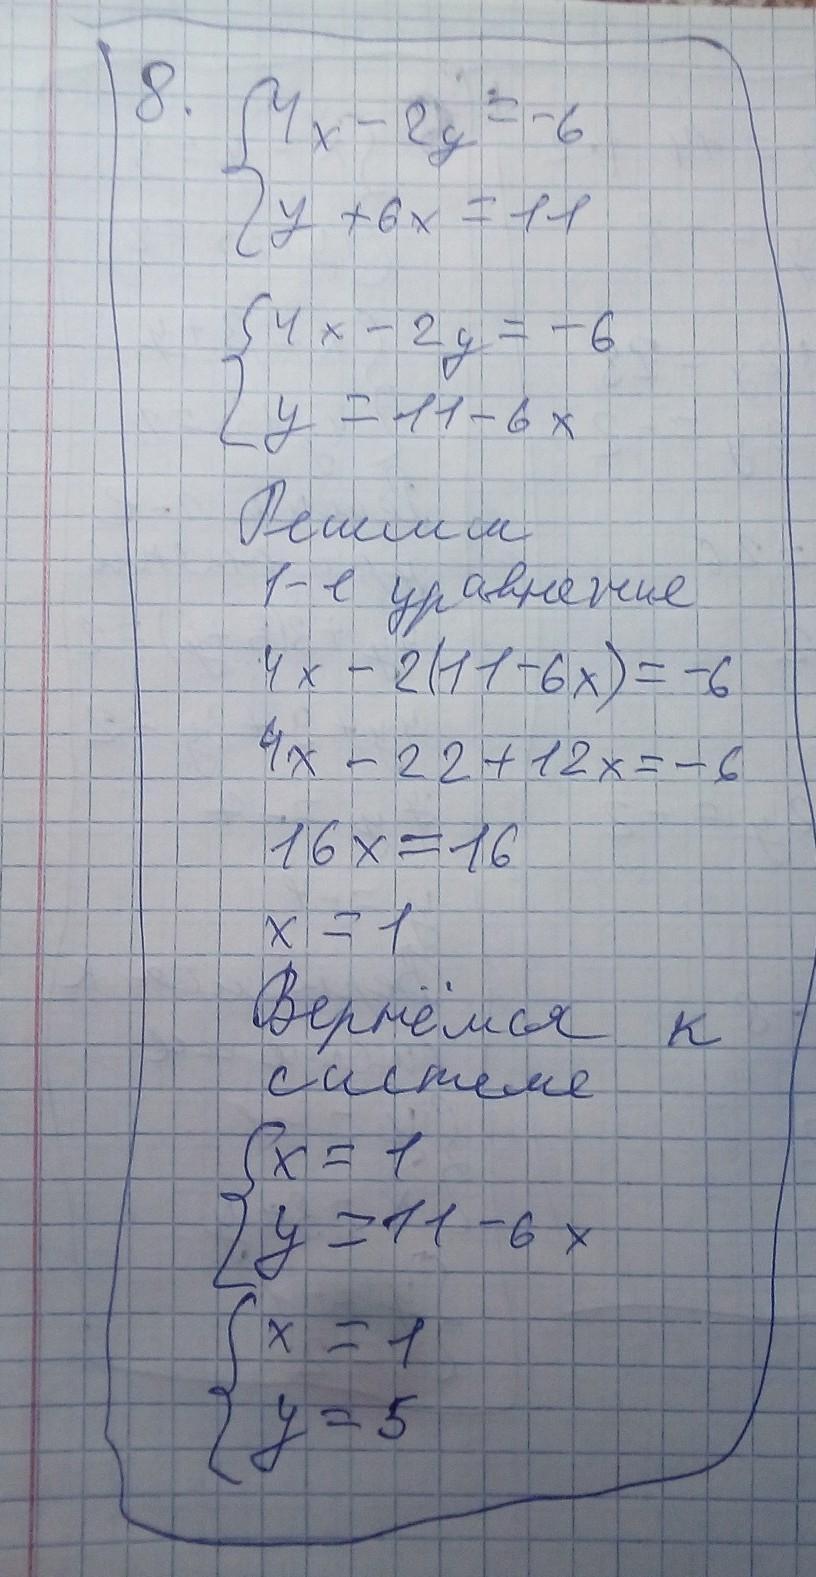 8. {4x - 2y = -6
{y + 6x = 11
{4x - 2y = -6
{y = 11 - 6x
Решим
1-е уравнение
4x - 2(11-6x) = -6
4x - 22 + 12x = -6
16x = 16
x = 1
Вернёмся к
системе
{x = 1
{y = 11 - 6x
{x = 1
{y = 5